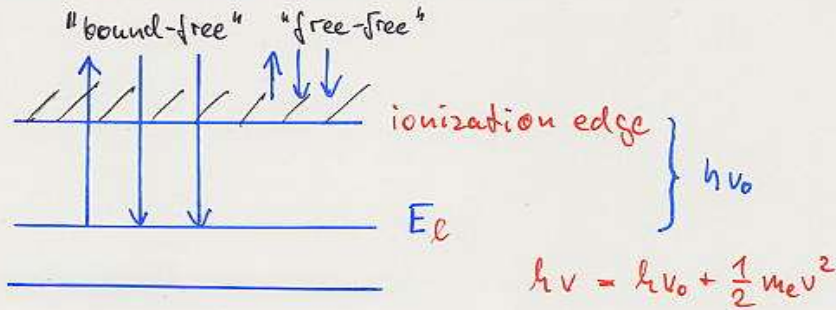 "bound-free" "free-free"
ionization edge
hν₀
Eℓ
hν = hν₀ + ½ mₑv²